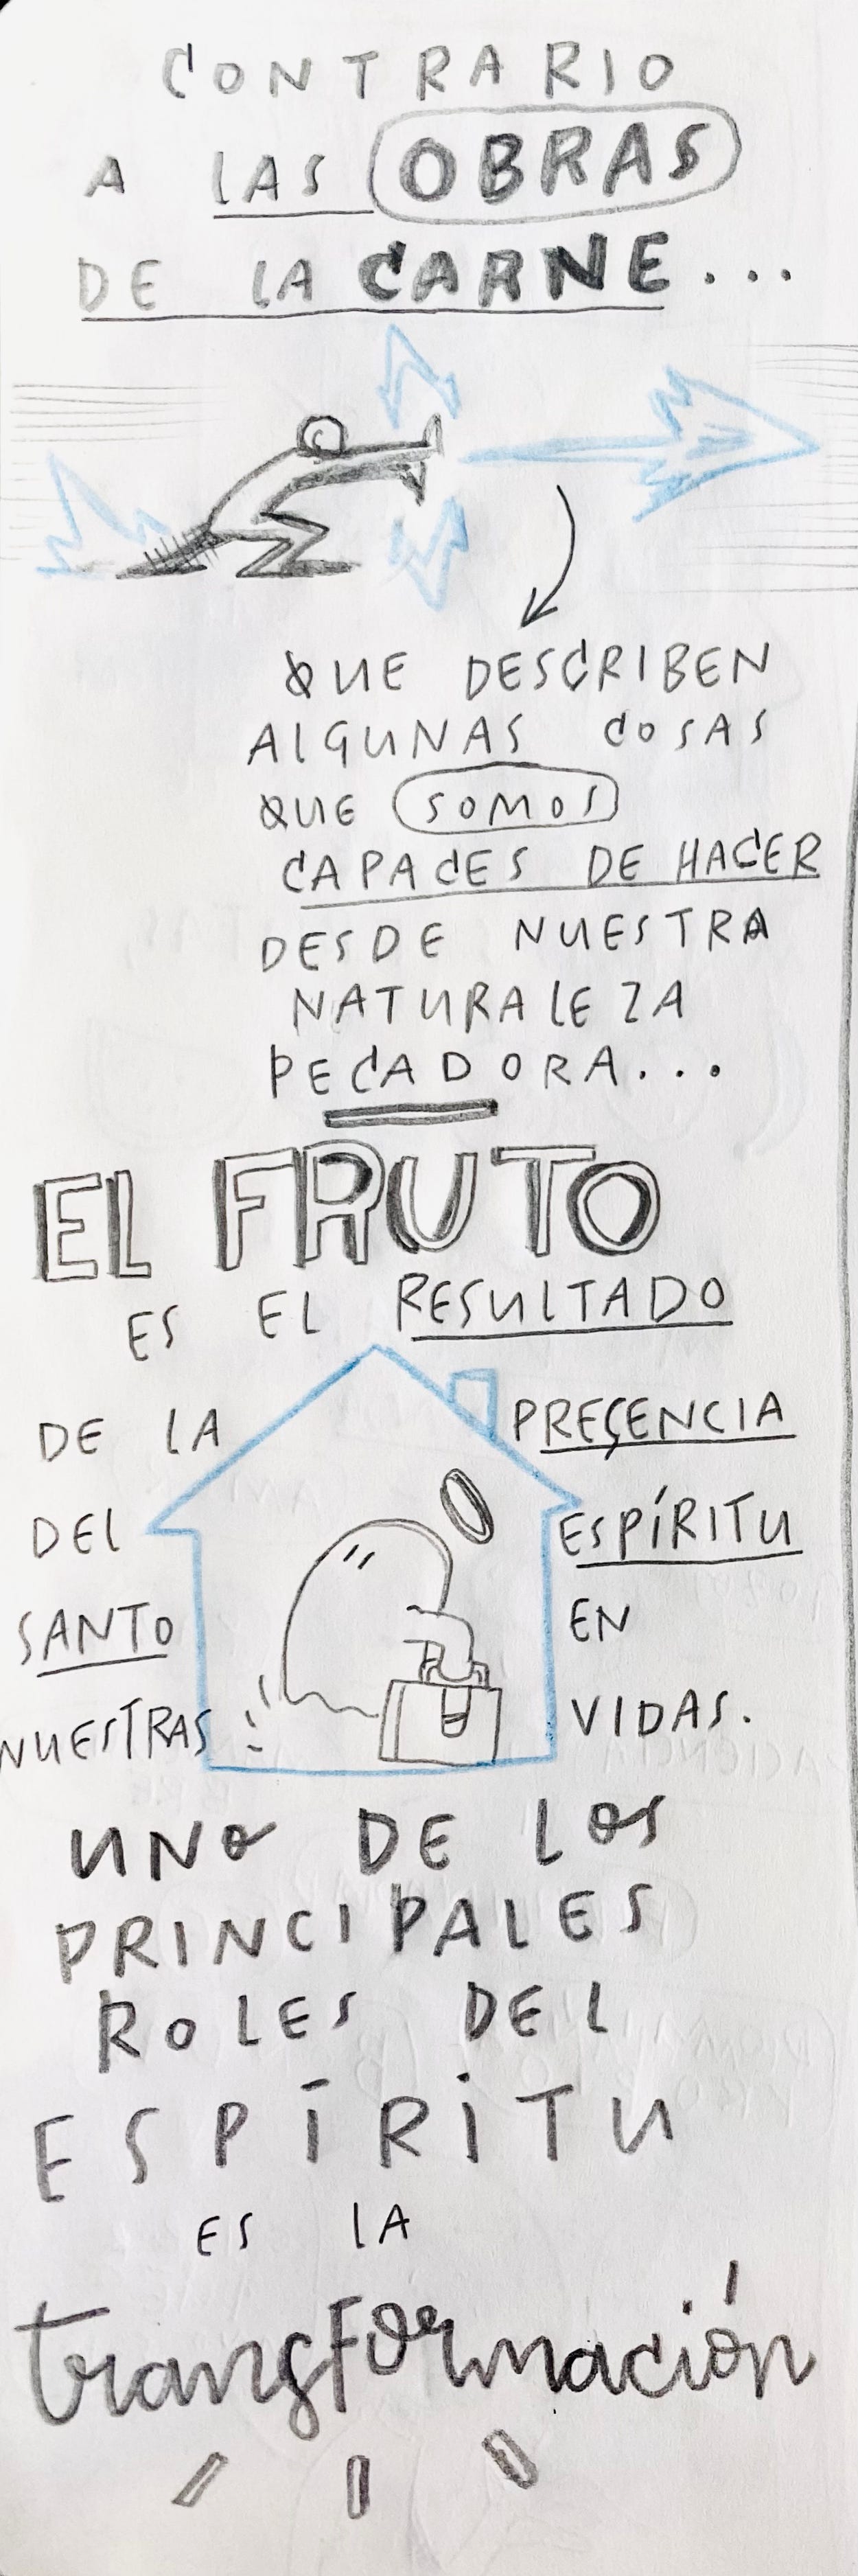 CONTRARIO
A LAS OBRAS
DE LA CARNE...
QUE DESCRIBEN
ALGUNAS COSAS
QUE SOMOS
CAPACES DE HACER
DESDE NUESTRA
NATURALEZA
PECADORA...
EL FRUTO
ES EL RESULTADO
DE LA PRESENCIA
DEL ESPÍRITU
SANTO EN
NUESTRAS VIDAS.
UNO DE LOS
PRINCIPALES
ROLES DEL
ESPÍRITU
ES LA
transformación